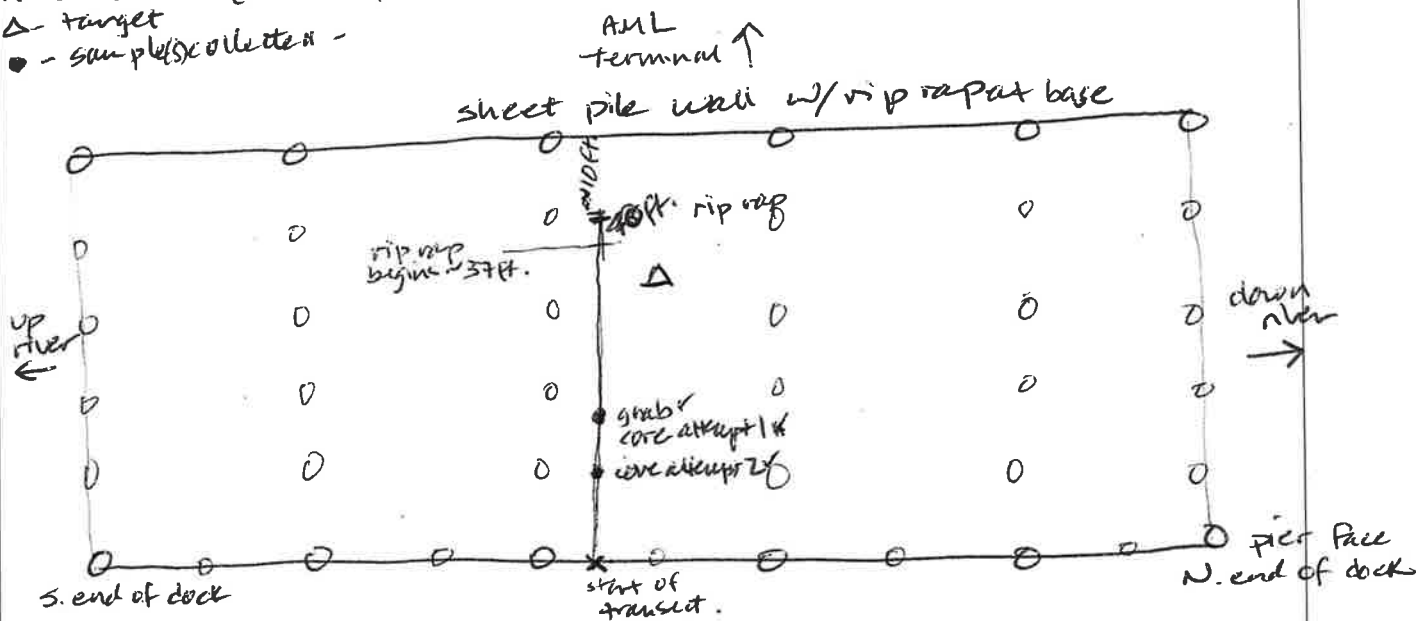 Δ - target
● - sample(s) collected -
AML
terminal ↑
sheet pile wall w/ rip rap at base
~10ft
ft. rip rap
rip rap
begins ~37ft.
Δ
up
river
←
down
river
→
grab ✓
core attempt 1
core attempt 2
pier face
S. end of dock
start of
transect.
N. end of dock